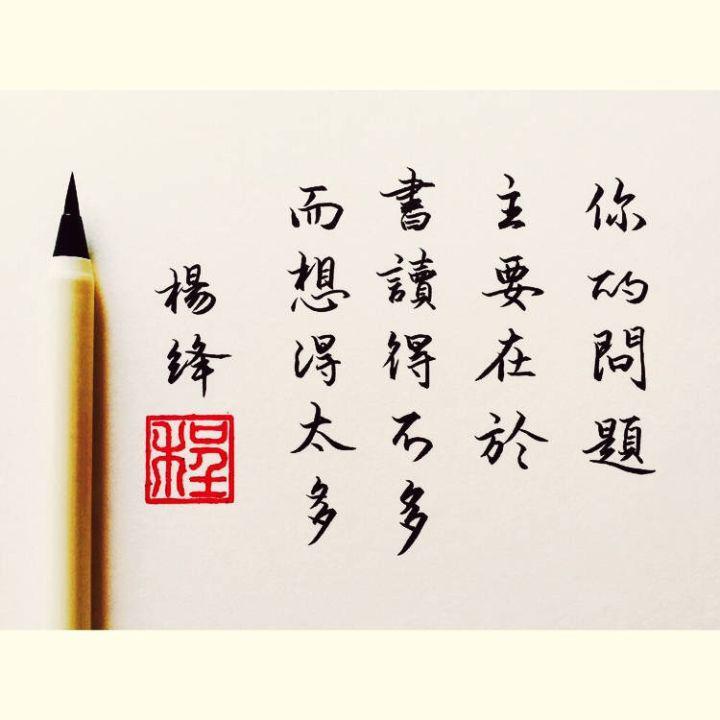 你的問題
主要在於
書讀得不多
而想得太多
楊絳
程